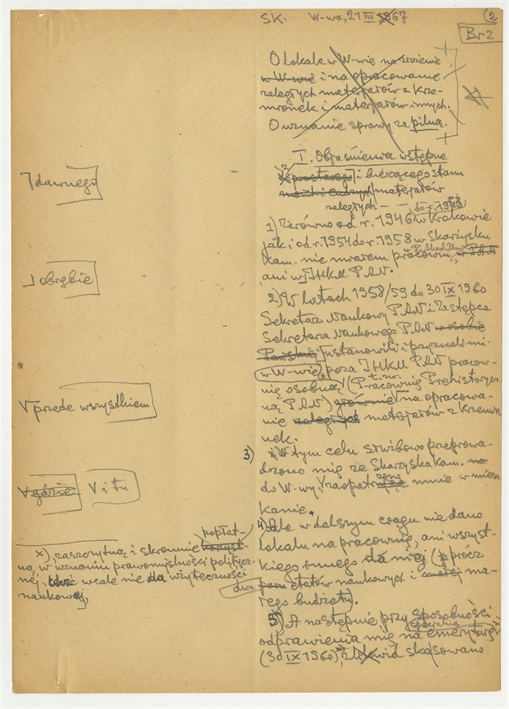 SK. W-wa, 21 III 1967
2
Br 2
O lokale w W-wie na
w W-wie i na opracowanie
zaległych materjałów z Krze-
mionek i materjałów innych.
O uznanie sprawy za pilną.
I. Objaśnienia wstępne
i bieżącego stanu
materjałów
zaległych
do r. 1953
1) Zarówno od r. 1946 w Krakowie
jak i od r. 1954 do r. 1958 w Skarżysku
Kam. nie miałem pracowni, w PAN
ani w IHKM PAN.
2) W latach 1958/59 do 30 IX 1960
Sekretarz Naukowy PAN i Zastępca
Sekretarza Naukowego PAN
ustanowili i przyznali mi
w W-wie poza IHKM PAN pracow-
nię osobną (t. zw. Pracownię Prehistorycz-
ną PAN) na opracowa-
nie zaległych materjałów z Krzemio-
nek.
3) W tym celu służbowo przeprowa-
dzono mię ze Skarżyska Kam.
do W-wy i zaopatrzono mnie w miesz-
kanie.
4) Ale w dalszym ciągu nie dano
lokalu na pracownię, ani wszyst-
kiego innego dla niej (prócz
etatów naukowych i ma-
łego budżetu).
5) A następnie przy sposobności
odprawienia mię na emeryturę
(30 IX 1960) skasowano
I dawnego
I obrębie
V przede wszystkiem
V gdzie V i tu
x) zaszczytną i skromnie popłat-
ną, w uznaniu prawomyślności politycz-
nej wcale nie dla użyteczności
naukowej,